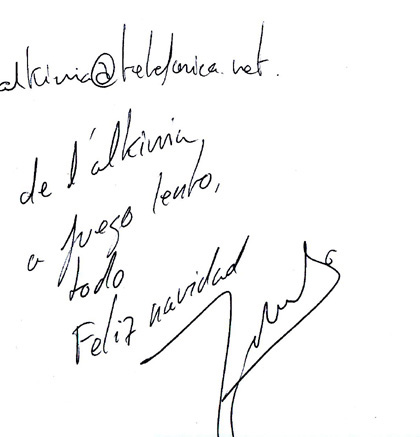 alkimia@telefonica.net.
de l'alkimia,
a fuego lento,
todo
Feliz navidad